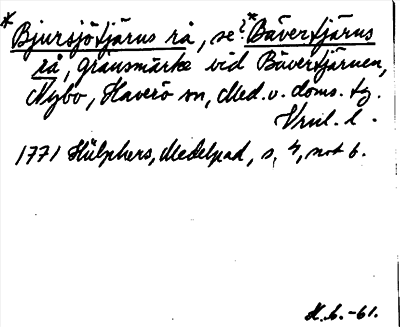 *Bjursjötjärns rå, se? *Bävertjärns
rå, gränsmärke vid Bävertjärnen,
Nybo, Haverö sn, Med. v. doms. tg.
l.
1771 Hülphers, Medelpad, s. 4, not 6.
H. b. -61.